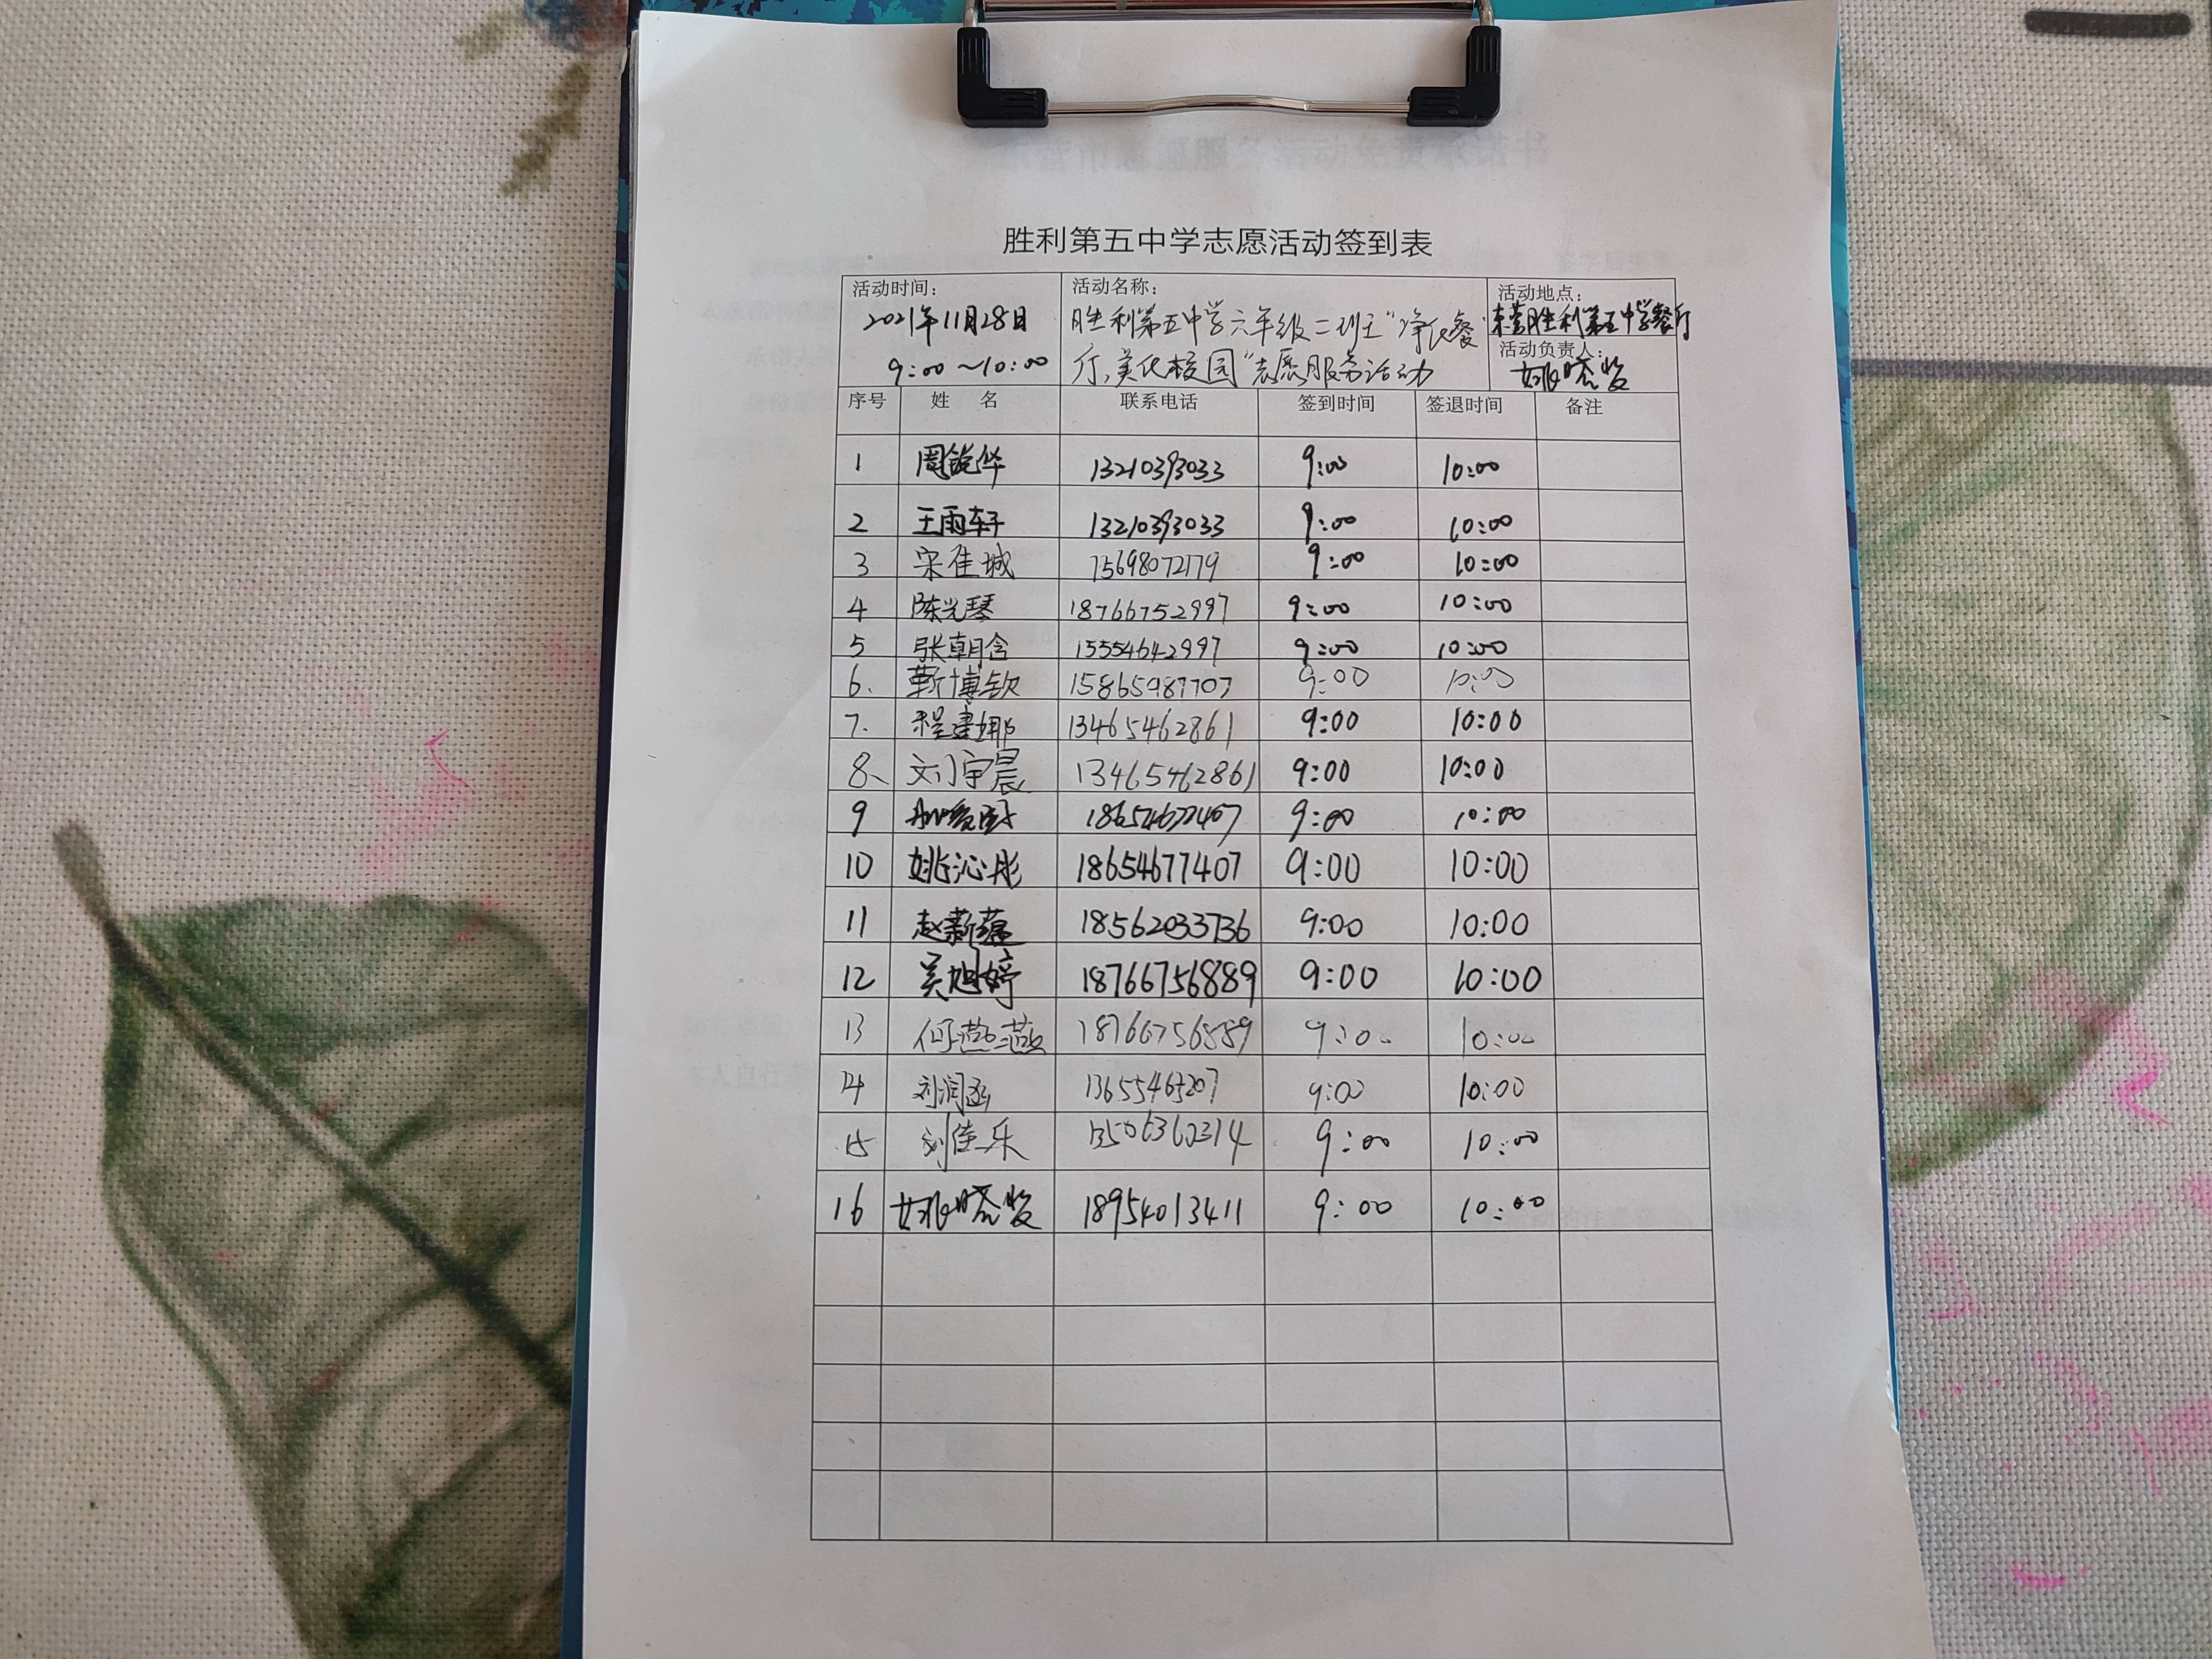 胜利第五中学志愿活动签到表
活动时间: 活动名称: 活动地点:
2021年11月28日 胜利第五中学六年级二班"净化餐 东营胜利第五中学餐厅
9:00~10:00 厅,美化校园"志愿服务活动 活动负责人: 姚晓俊
序号 姓 名 联系电话 签到时间 签退时间 备注
1 周锐华 13210393033 9:00 10:00
2 王雨轩 13210393033 9:00 10:00
3 宋佳城 15698072179 9:00 10:00
4 陈光琴 18766752997 9:00 10:00
5 张朝含 15554642997 9:00 10:00
6. 靳博钦 15865987707 9:00 10:00
7. 程建娜 13465462861 9:00 10:00
8、 刘宇晨 13465462861 9:00 10:00
9 18654677407 9:00 10:00
10 姚沁彤 18654677407 9:00 10:00
11 赵新蕴 18562033736 9:00 10:00
12 吴旭婷 18766756889 9:00 10:00
13 何燕燕 18766756889 9:00 10:00
14 刘润函 13655465207 9:00 10:00
15 刘佳乐 13506360314 9:00 10:00
16 姚晓俊 18954013411 9:00 10:00